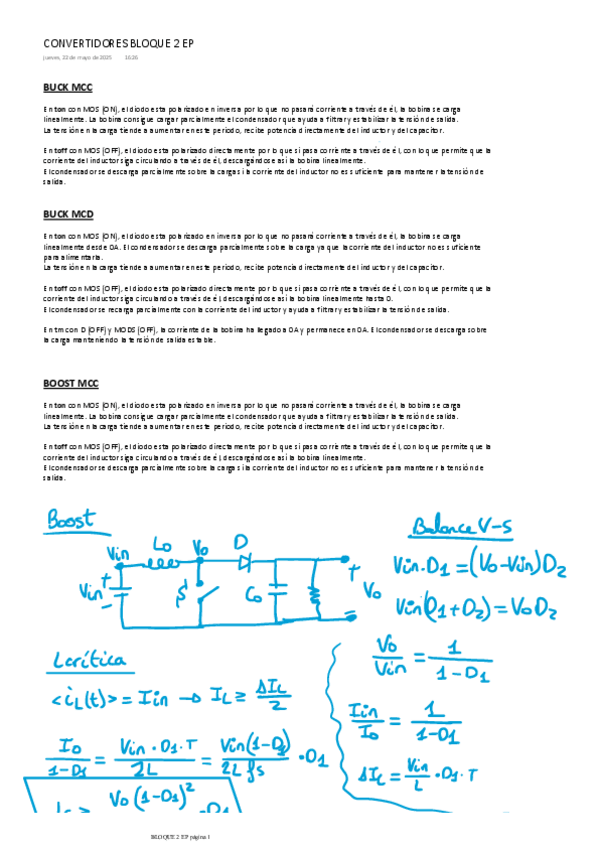 CONVERTIDORES BLOQUE 2 EP
jueves, 22 de mayo de 2025 16:26
BUCK MCC
En ton con MOS (ON), el diodo esta polarizado en inversa por lo que no pasará corriente a través de él, la bobina se carga
linealmente. La bobina consigue cargar parcialmente el condensador que ayuda a filtrar y estabilizar la tensión de salida.
La tensión en la carga tiende a aumentar en este periodo, recibe potencia directamente del inductor y del capacitor.
En toff con MOS (OFF), el diodo esta polarizado directamente por lo que si pasa corriente a través de él, con lo que permite que la
corriente del inductor siga circulando a través de él, descargándose asi la bobina linealmente.
El condensador se descarga parcialmente sobre la carga si la corriente del inductor no es suficiente para mantener la tensión de
salida.
BUCK MCD
En ton con MOS (ON), el diodo esta polarizado en inversa por lo que no pasará corriente a través de él, la bobina se carga
linealmente desde 0A. El condensador se descarga parcialmente sobre la carga ya que la corriente del inductor no es suficiente
para alimentarla.
La tensión en la carga tiende a aumentar en este periodo, recibe potencia directamente del inductor y del capacitor.
En toff con MOS (OFF), el diodo esta polarizado directamente por lo que si pasa corriente a través de él, con lo que permite que la
corriente del inductor siga circulando a través de él, descargándose asi la bobina linealmente hasta 0.
El condensador se recarga parcialmente con la corriente del inductor y ayuda a filtrar y estabilizar la tensión de salida.
En tm con D (OFF) y MODS (OFF), la corriente de la bobina ha llegado a 0A y permanece en 0A. El condensador se descarga sobre
la carga manteniendo la tensión de salida estable.
BOOST MCC
En ton con MOS (ON), el diodo esta polarizado en inversa por lo que no pasará corriente a través de él, la bobina se carga
linealmente. La bobina consigue cargar parcialmente el condensador que ayuda a filtrar y estabilizar la tensión de salida.
La tensión en la carga tiende a aumentar en este periodo, recibe potencia directamente del inductor y del capacitor.
En toff con MOS (OFF), el diodo esta polarizado directamente por lo que si pasa corriente a través de él, con lo que permite que la
corriente del inductor siga circulando a través de él, descargándose asi la bobina linealmente.
El condensador se descarga parcialmente sobre la carga si la corriente del inductor no es suficiente para mantener la tensión de
salida.
Boost
Vin Lo Vo D
Vin + -
S
Co
+ Vo
Balance V-S
Vin·D1 = (Vo-Vin)D2
Vin(D1+D2) = Vo D2
Vo/Vin = 1/(1-D1)
Iin/Io = 1/(1-D1)
ΔIL = Vin/L · D1 · T
Lcrítica
<iL(t)> = Iin → IL ≥ ΔIL/2
Io/(1-D1) = Vin · D1 · T/2L = Vin(1-D1)/2L fs · D1
Vo (1-D1)² · D1
BLOQUE 2 EP página 1